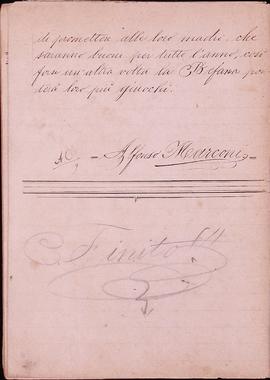 di prometter alle loro madri, che
saranno buoni per tutto l'anno, così
forse un'altra volta la Befana por
terà loro più giuochi.
Alfonso Marconi
Finito